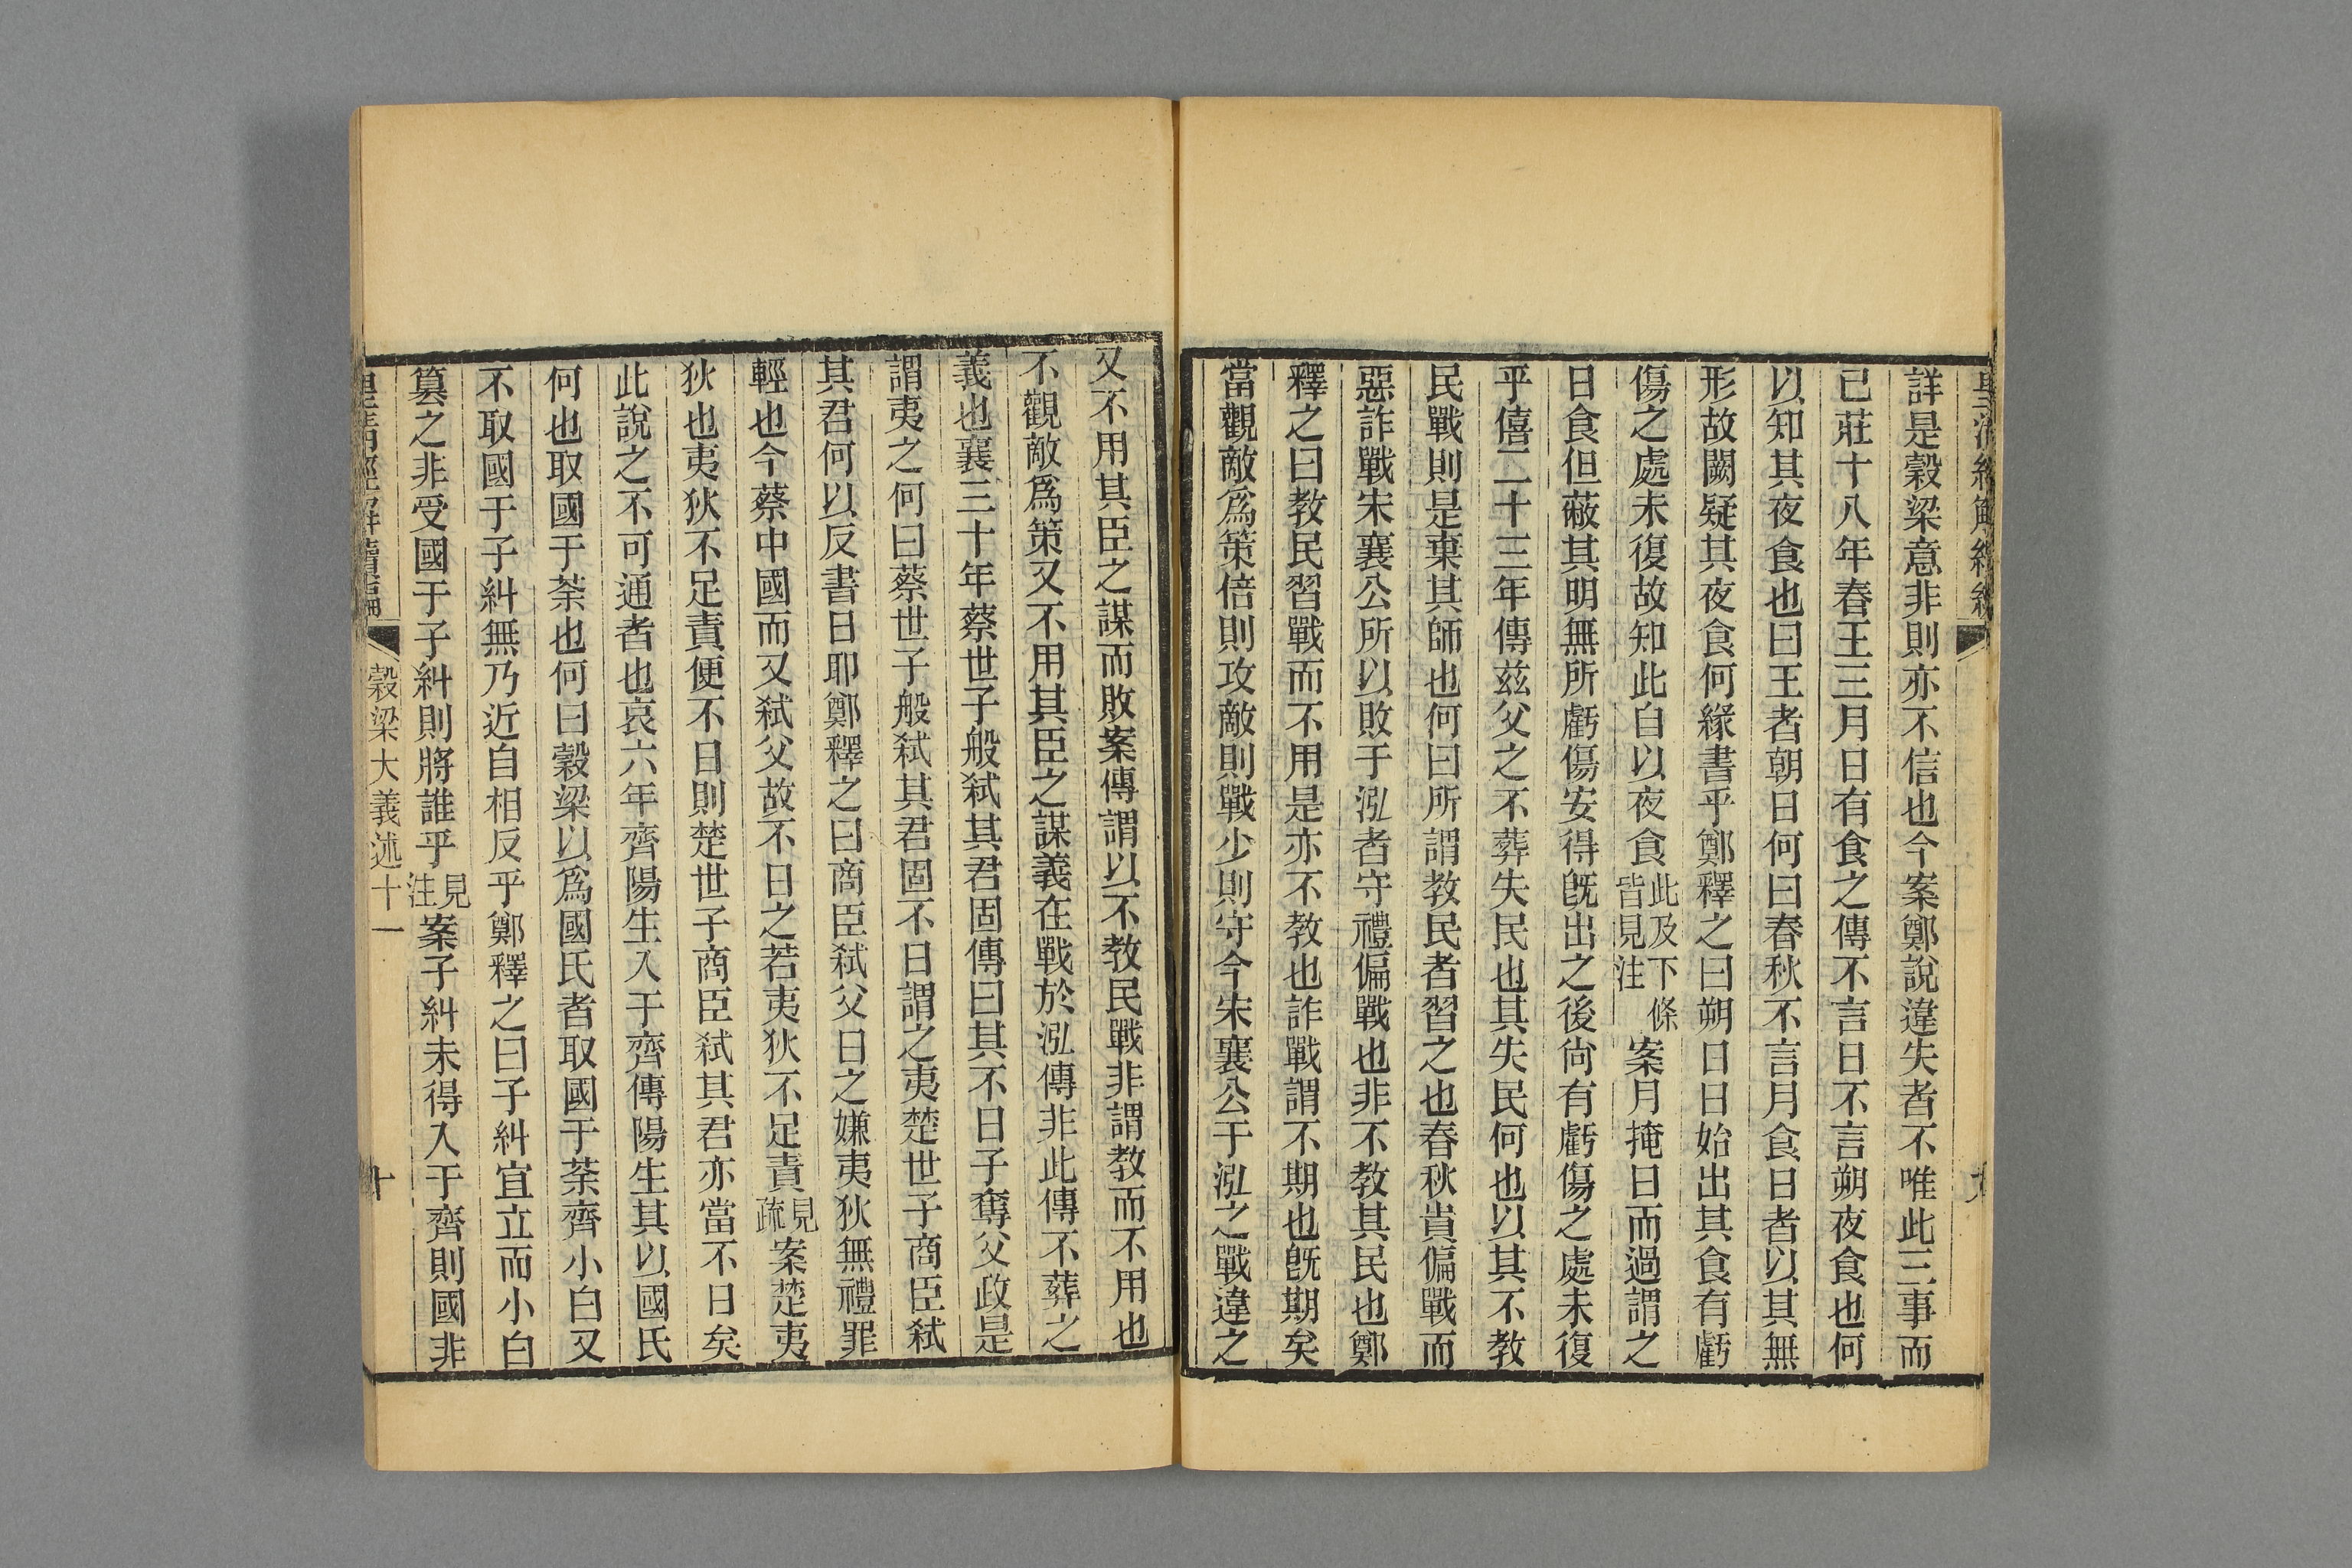 詳是穀梁意非則亦不信也今案鄭說違失者不唯此三事而
已莊十八年春王三月日有食之傳不言日不言朔夜食也何
以知其夜食也曰王者朝日何曰春秋不言月食日者以其無
形故闕疑其夜食何緣書乎鄭釋之曰朔日日始出其食有虧
傷之處未復故知此自以夜食此及下條皆見注案月掩日而過謂之
日食但蔽其明無所虧傷安得旣出之後尙有虧傷之處未復
乎僖二十三年傳兹父之不葬失民也其失民何也以其不教
民戰則是棄其師也何曰所謂教民者習之也春秋貴偏戰而
惡詐戰宋襄公所以敗于泓者守禮偏戰也非不教其民也鄭
釋之曰教民習戰而不用是亦不教也詐戰謂不期也旣期矣
當觀敵爲策倍則攻敵則戰少則守今宋襄公于泓之戰違之
又不用其臣之謀而敗案傳謂以不教民戰非謂教而不用也
不觀敵爲策又不用其臣之謀義在戰於泓傳非此傳不葬之
義也襄三十年蔡世子般弑其君固傳曰其不日子奪父政是
謂夷之何曰蔡世子般弑其君固不日謂之夷楚世子商臣弑
其君何以反書日耶鄭釋之曰商臣弑父日之嫌夷狄無禮罪
輕也今蔡中國而又弑父故不日之若夷狄不足責見疏案楚夷
狄也夷狄不足責便不日則楚世子商臣弑其君亦當不日矣
此說之不可通者也哀六年齊陽生入于齊傳陽生其以國氏
何也取國于荼也何曰穀梁以爲國氏者取國于荼齊小白又
不取國于子糾無乃近自相反乎鄭釋之曰子糾宜立而小白
篡之非受國于子糾則將誰乎見注案子糾未得入于齊則國非
皇淸經解續編
穀梁大義述十一
十